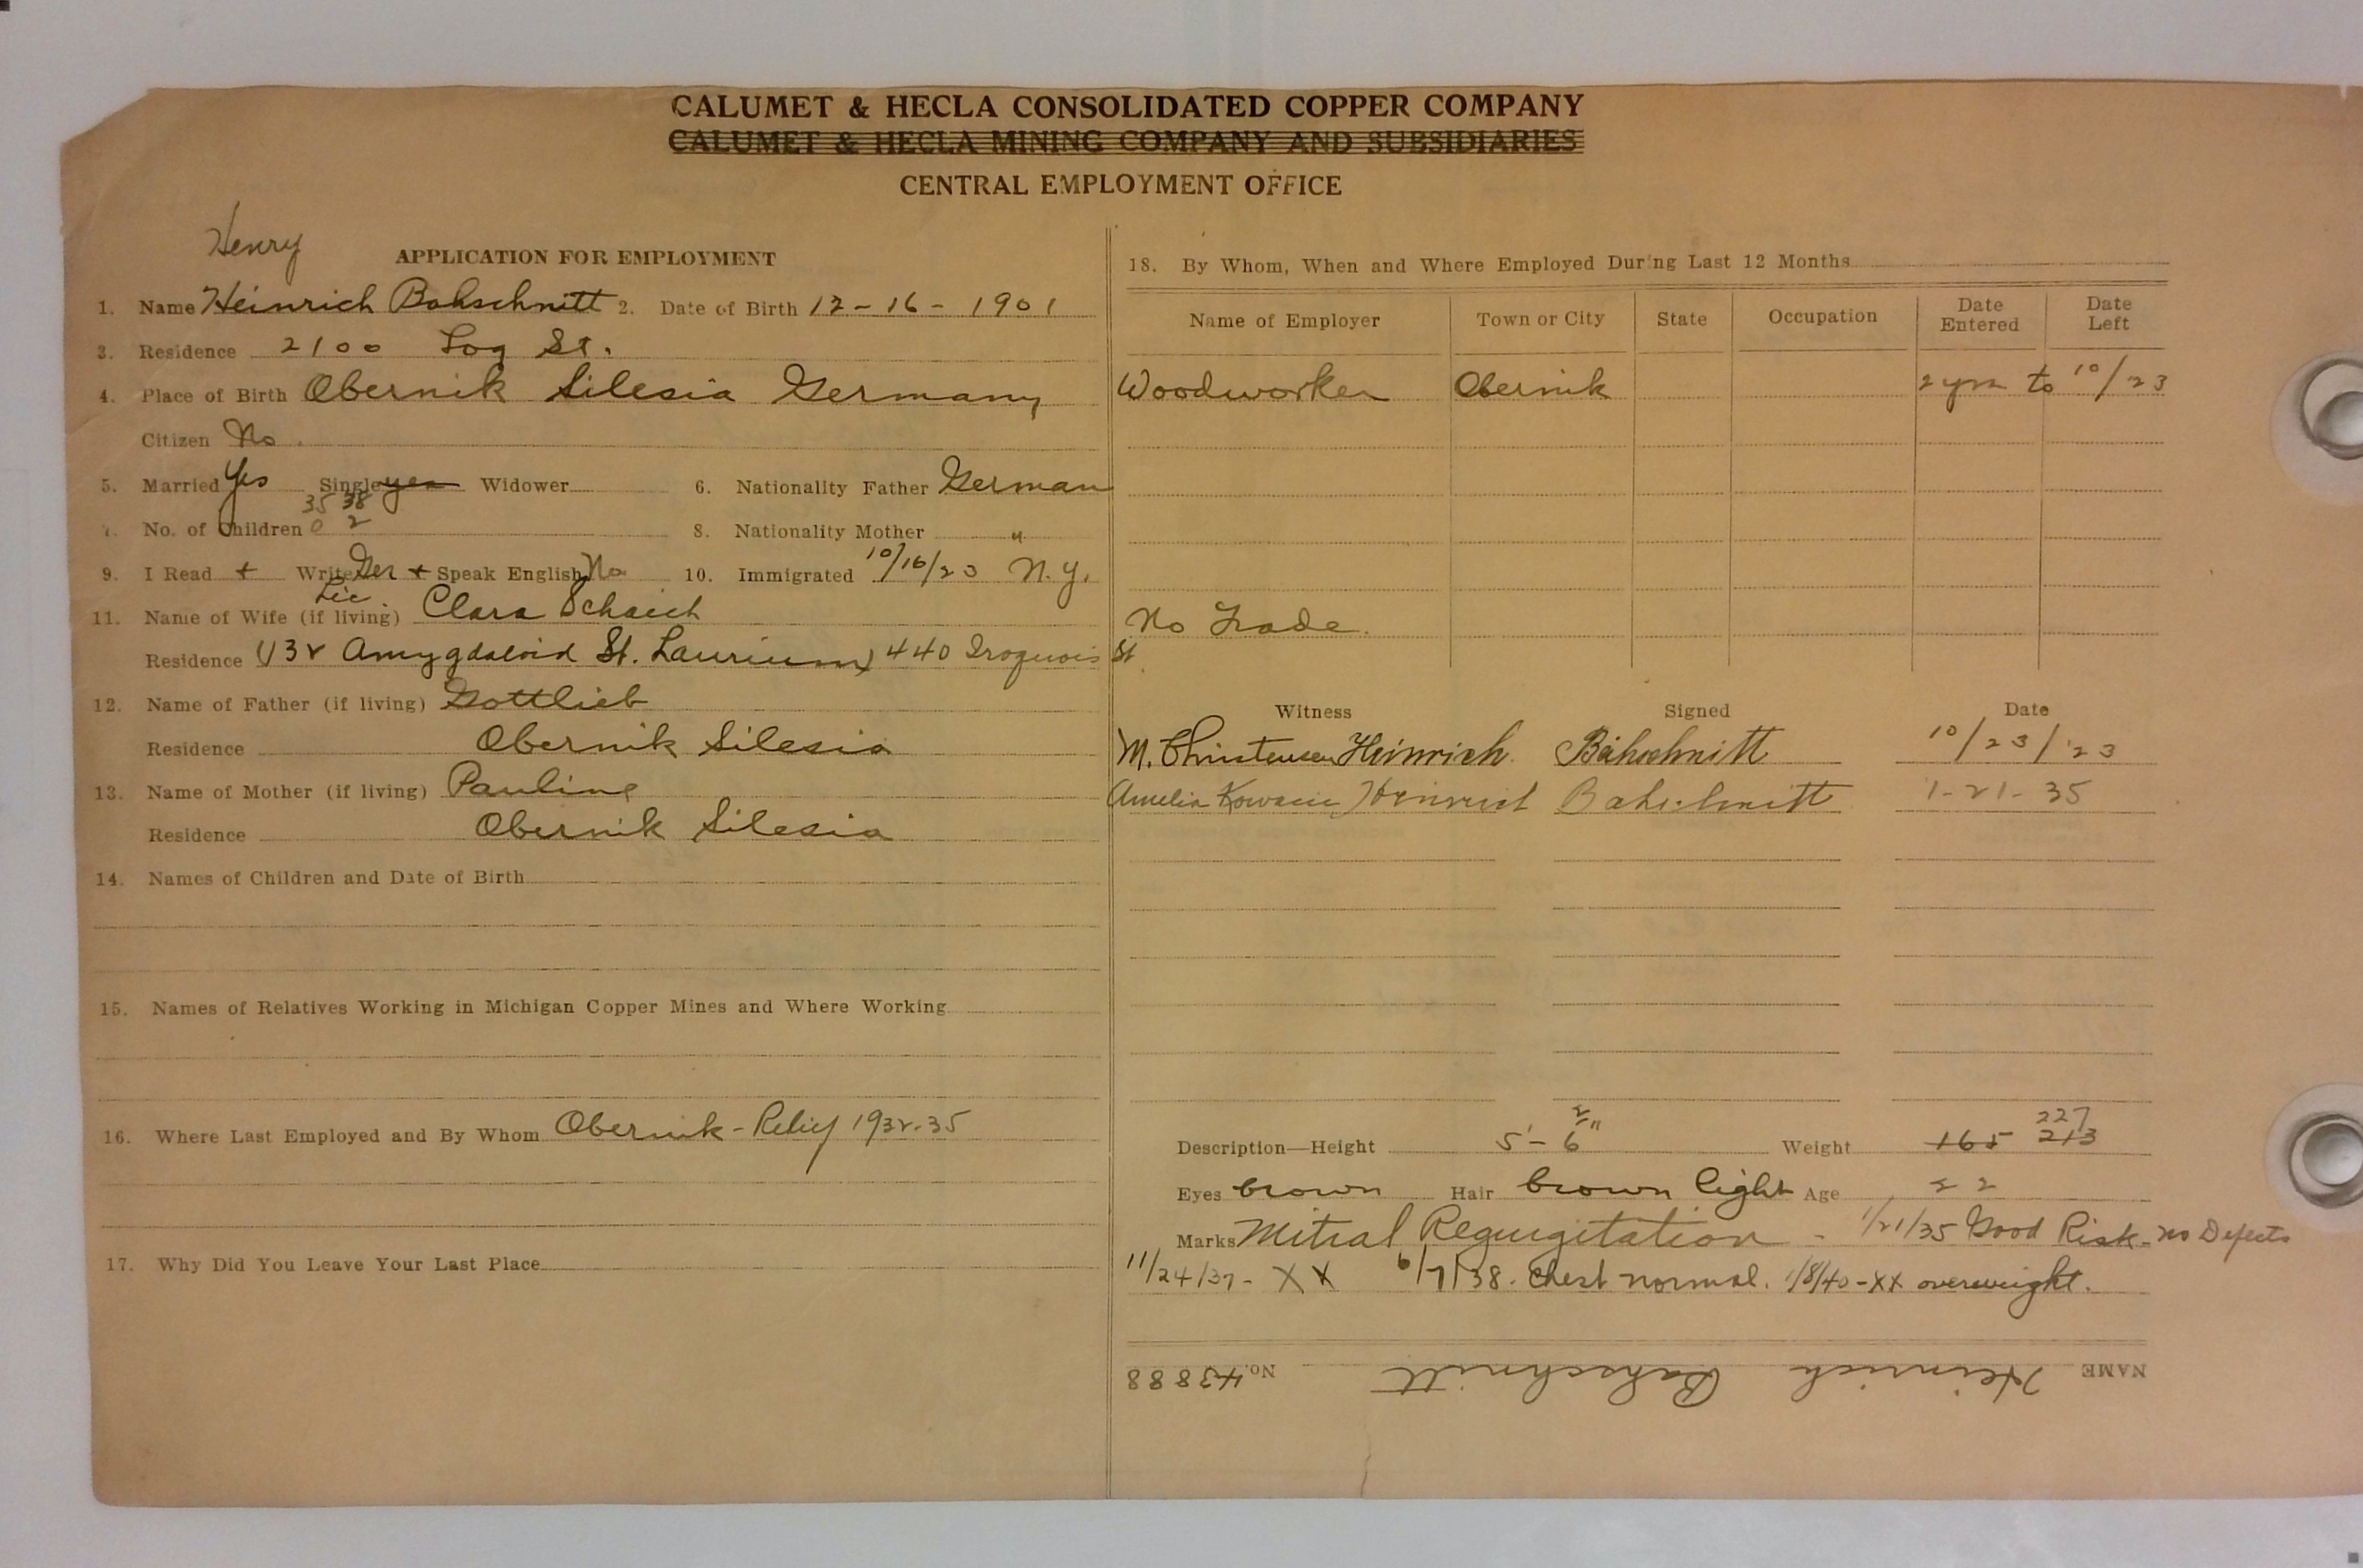 CALUMET & HECLA CONSOLIDATED COPPER COMPANY
CALUMET & HECLA MINING COMPANY AND SUBSIDIARIES
CENTRAL EMPLOYMENT OFFICE
Henry
APPLICATION FOR EMPLOYMENT
1. Name Heinrich Bahschnitt 2. Date of Birth 12-16-1901
3. Residence 2100 Log St.
4. Place of Birth Obernik Silesia Germany
Citizen No.
5. Married Yes Single yes Widower 6. Nationality Father German
35 38
7. No. of Children 0 2 8. Nationality Mother "
9. I Read + Write Ger + Speak English No 10. Immigrated 10/16/23 N.Y.
11. Name of Wife (if living) Clara
Residence (132 Amygdaloid St. Laurium) 440 Iroquois St
12. Name of Father (if living) Gottlieb
Residence Obernik Silesia
13. Name of Mother (if living) Pauline
Residence Obernik Silesia
14. Names of Children and Date of Birth
15. Names of Relatives Working in Michigan Copper Mines and Where Working
16. Where Last Employed and By Whom Obernik - Relief 1932-35
17. Why Did You Leave Your Last Place
18. By Whom, When and Where Employed During Last 12 Months
Name of Employer Town or City State Occupation Date Entered Date Left
Woodworker Obernik 2 yrs to 10/23
No Trade.
Witness Signed Date
M. Christensen Heinrich Bahschnitt 10/23/23
Amelia Heinrich Bahschnitt 1-21-35
Description—Height 5'-6" 2 Weight 165 213 227
Eyes brown Hair brown light Age 22
Marks Mitral Regurgitation - 1/21/35 Good Risk - no Defects
11/24/37 - XX 6/7/38. Chest normal. 1/8/40 - XX overweight.
NAME Heinrich Bahschnitt No. 43888